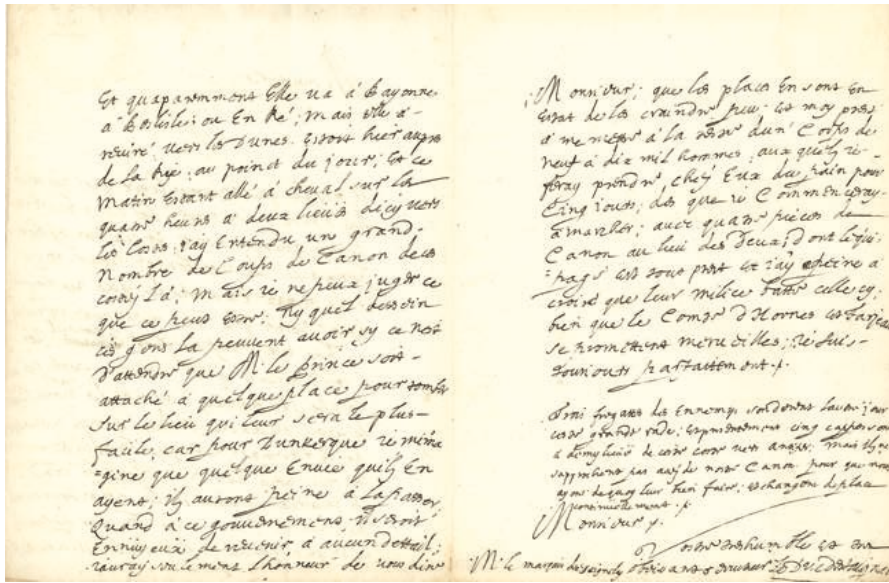 Et quaparemment Elle va à Bayonne
à Belisle; ou En Ré; mais Elle a
reviré vers les Dunes. Estoit hier aupres
de la Rye; au poinct du jour; Et ce
matin Estant allé à cheval sur les
quatre heures à deux lieües d'icy vers
les Costes j'ay Entendu un grand
Nombre de Coups de Canon de ces
costés La; Mais ie ne peux juger ce
que ce peut Estre; Ny quel dessein
ces gens la peuvent avoir sy ce nest
D'attendre que M. le Prince soit
attaché à quelque place pour tomber
sur le lieu qui leur sera le plus
facile, car pour Dunkerque ie mima
=gine que quelque Envie quilz En
ayent; ilz auront peine à la passer;
Quand à ce gouvernement; il seroit
Ennuyeux de revenir, à aucun dettail;
j'auray seulement l'honneur de vous dire
Monsieur; que les places En sont en
Estat de les craindre peu. Et moy prest
à me mettre à la teste d'un Corps de
neuf à dix mil hommes; aux quelz ie
feray prendre chez Eux du pain pour
Cinq jours; dés que ie Commenceray
à marcher; avec quatre pièces de
Canon au lieu des Deux; dont lequi
=page est tout prest Et j'ay peine à
croire que leur milice batte celle cy;
bien que le Comte D'Hornes et
se promettent merveilles; ie suis
tousiours parfaittement.
Trois fregattes des Ennemys
cette grande rade; Et presentement cinq
à demy lieüe de cette coste vers
mais ilz ne
s'approchent pas assez de nostre Canon pour que nous
ayons de quoy leur bien faire; Et changent de place
Continuellement.
Monsieur
Vostre tres humble et tres
M. le marquis de Seignelay obeissant serviteur le Duc de